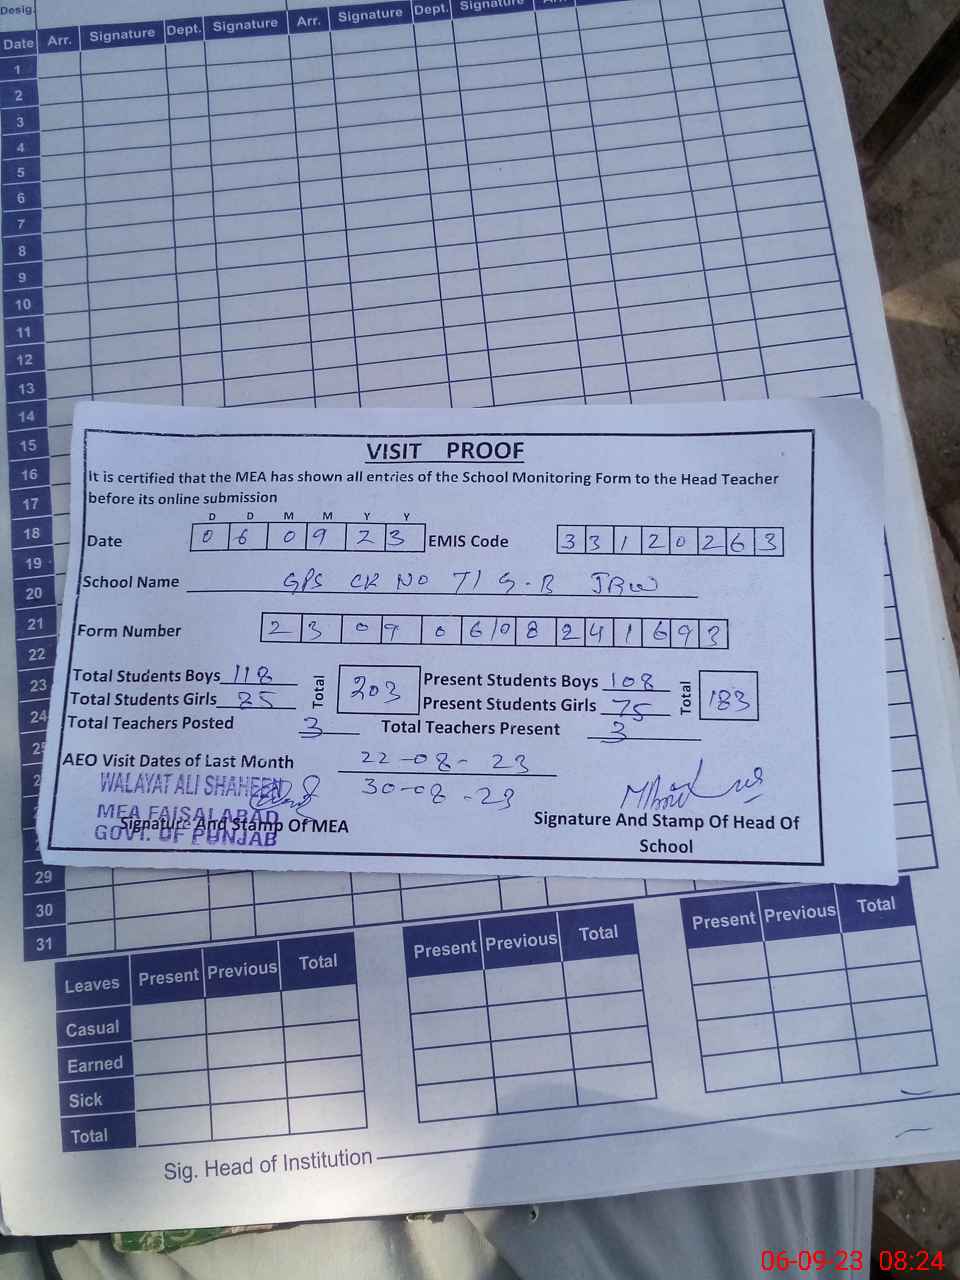 Desig.
Date Arr. Signature Dept. Signature Arr. Signature Dept. Signature
1
2
3
4
5
6
7
8
9
10
11
12
13
14
15
16
17
18
19
20
21
22
23
24
VISIT PROOF
It is certified that the MEA has shown all entries of the School Monitoring Form to the Head Teacher
before its online submission
D D M M Y Y
Date 0 6 0 9 2 3 EMIS Code 3 3 1 2 0 2 6 3
School Name GPS CK NO 71 G-B JBW
Form Number 2 3 0 9 0 6 1 0 8 2 4 1 6 9 3
Total Students Boys 118 Total 203 Present Students Boys 108 Total 183
Total Students Girls 85 Present Students Girls 75
Total Teachers Posted 3 Total Teachers Present 3
AEO Visit Dates of Last Month 22-08-23
30-08-23
WALAYAT ALI SHAHEEN
MEA FAISALABAD
GOVT. OF PUNJAB
Signature And Stamp Of MEA
Signature And Stamp Of Head Of
School
29
30
31
Leaves Present Previous Total Present Previous Total Present Previous Total
Casual
Earned
Sick
Total
Sig. Head of Institution
06-09-23 08:24